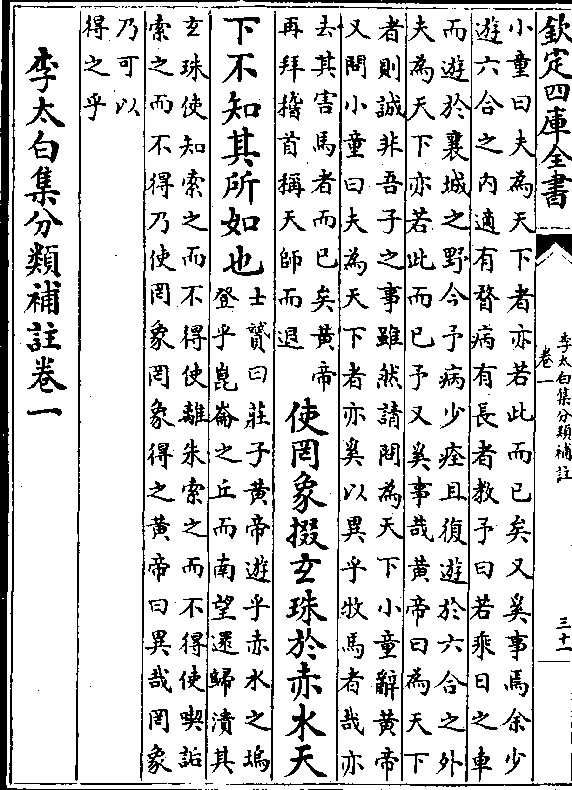 欽定四庫全書
李太白集分類補註
卷一
三十一
小童曰夫為天下者亦若此而已矣又奚事焉余少
遊六合之内適有瞀病有長者教予曰若乘日之車
而遊於襄城之野今予病少痊且復遊於六合之外
夫為天下亦若此而已予又奚事哉黄帝曰為天下
者則誠非吾子之事雖然請問為天下小童辭黄帝
又問小童曰夫為天下者亦奚以異乎牧馬者哉亦
去其害馬者而已矣黄帝
再拜稽首稱天師而退
使罔象掇玄珠於赤水天
下不知其所如也
士贇曰莊子黄帝遊乎赤水之塢
登乎崑崙之丘而南望還歸漬其
玄珠使知索之而不得使離朱索之而不得使喫詬
索之而不得乃使罔象罔象得之黄帝曰異哉罔象
乃可以
得之乎
李太白集分類補註卷一